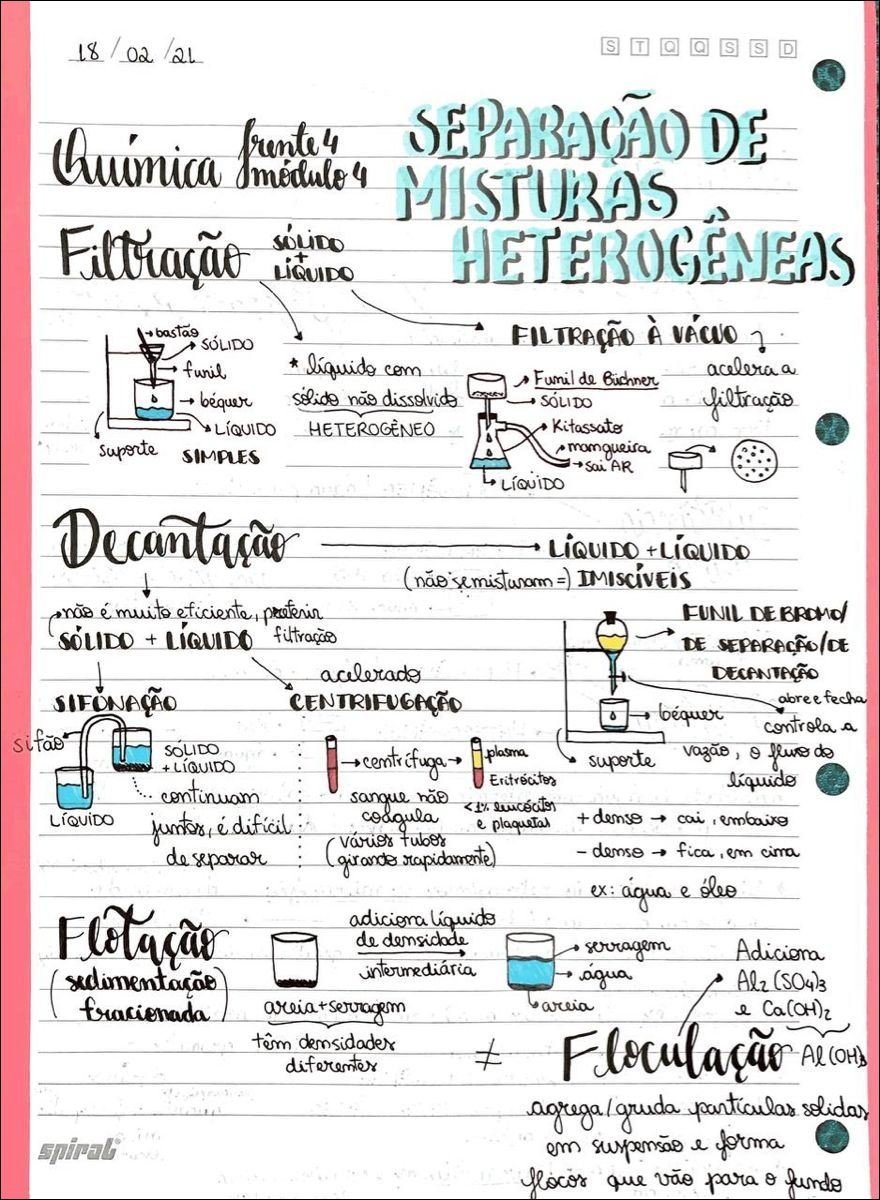 18/02/21
S T Q Q S S D
Química frente 4
módulo 4
SEPARAÇÃO DE
MISTURAS
HETEROGÊNEAS
Filtração SÓLIDO
+
LÍQUIDO
bastão
SÓLIDO
funil
béquer
LÍQUIDO
suporte
SIMPLES
* líquido com
sólido não dissolvido
HETEROGÊNEO
FILTRAÇÃO À VÁCUO
acelera a
filtração
Funil de Büchner
SÓLIDO
Kitassato
mangueira
sai AR
LÍQUIDO
Decantação
LÍQUIDO + LÍQUIDO
(não se misturam =) IMISCÍVEIS
não é muito eficiente, preferir
filtração
SÓLIDO + LÍQUIDO
SIFONAÇÃO
sifão
SÓLIDO
+ LÍQUIDO
LÍQUIDO
continuam
juntos, é difícil
de separar
acelerado
CENTRIFUGAÇÃO
centrífuga
plasma
Eritrócitos
<1% leucócitos
e plaquetas
sangue não
coagula
(vários tubos
girando rapidamente)
FUNIL DE BROMO/
DE SEPARAÇÃO/DE
DECANTAÇÃO
abre e fecha
controla a
vazão, o fluxo do
líquido
béquer
suporte
+ denso → cai, embaixo
- denso → fica, em cima
ex: água e óleo
Flotação
(sedimentação
fracionada)
areia + serragem
têm densidades
diferentes
adiciona líquido
de densidade
intermediária
serragem
água
areia
≠
Floculação
Adiciona
Al2(SO4)3
e Ca(OH)2
Al(OH)3
agrega/gruda partículas solidas
em suspensão e forma
flocos que vão para o fundo
spiral